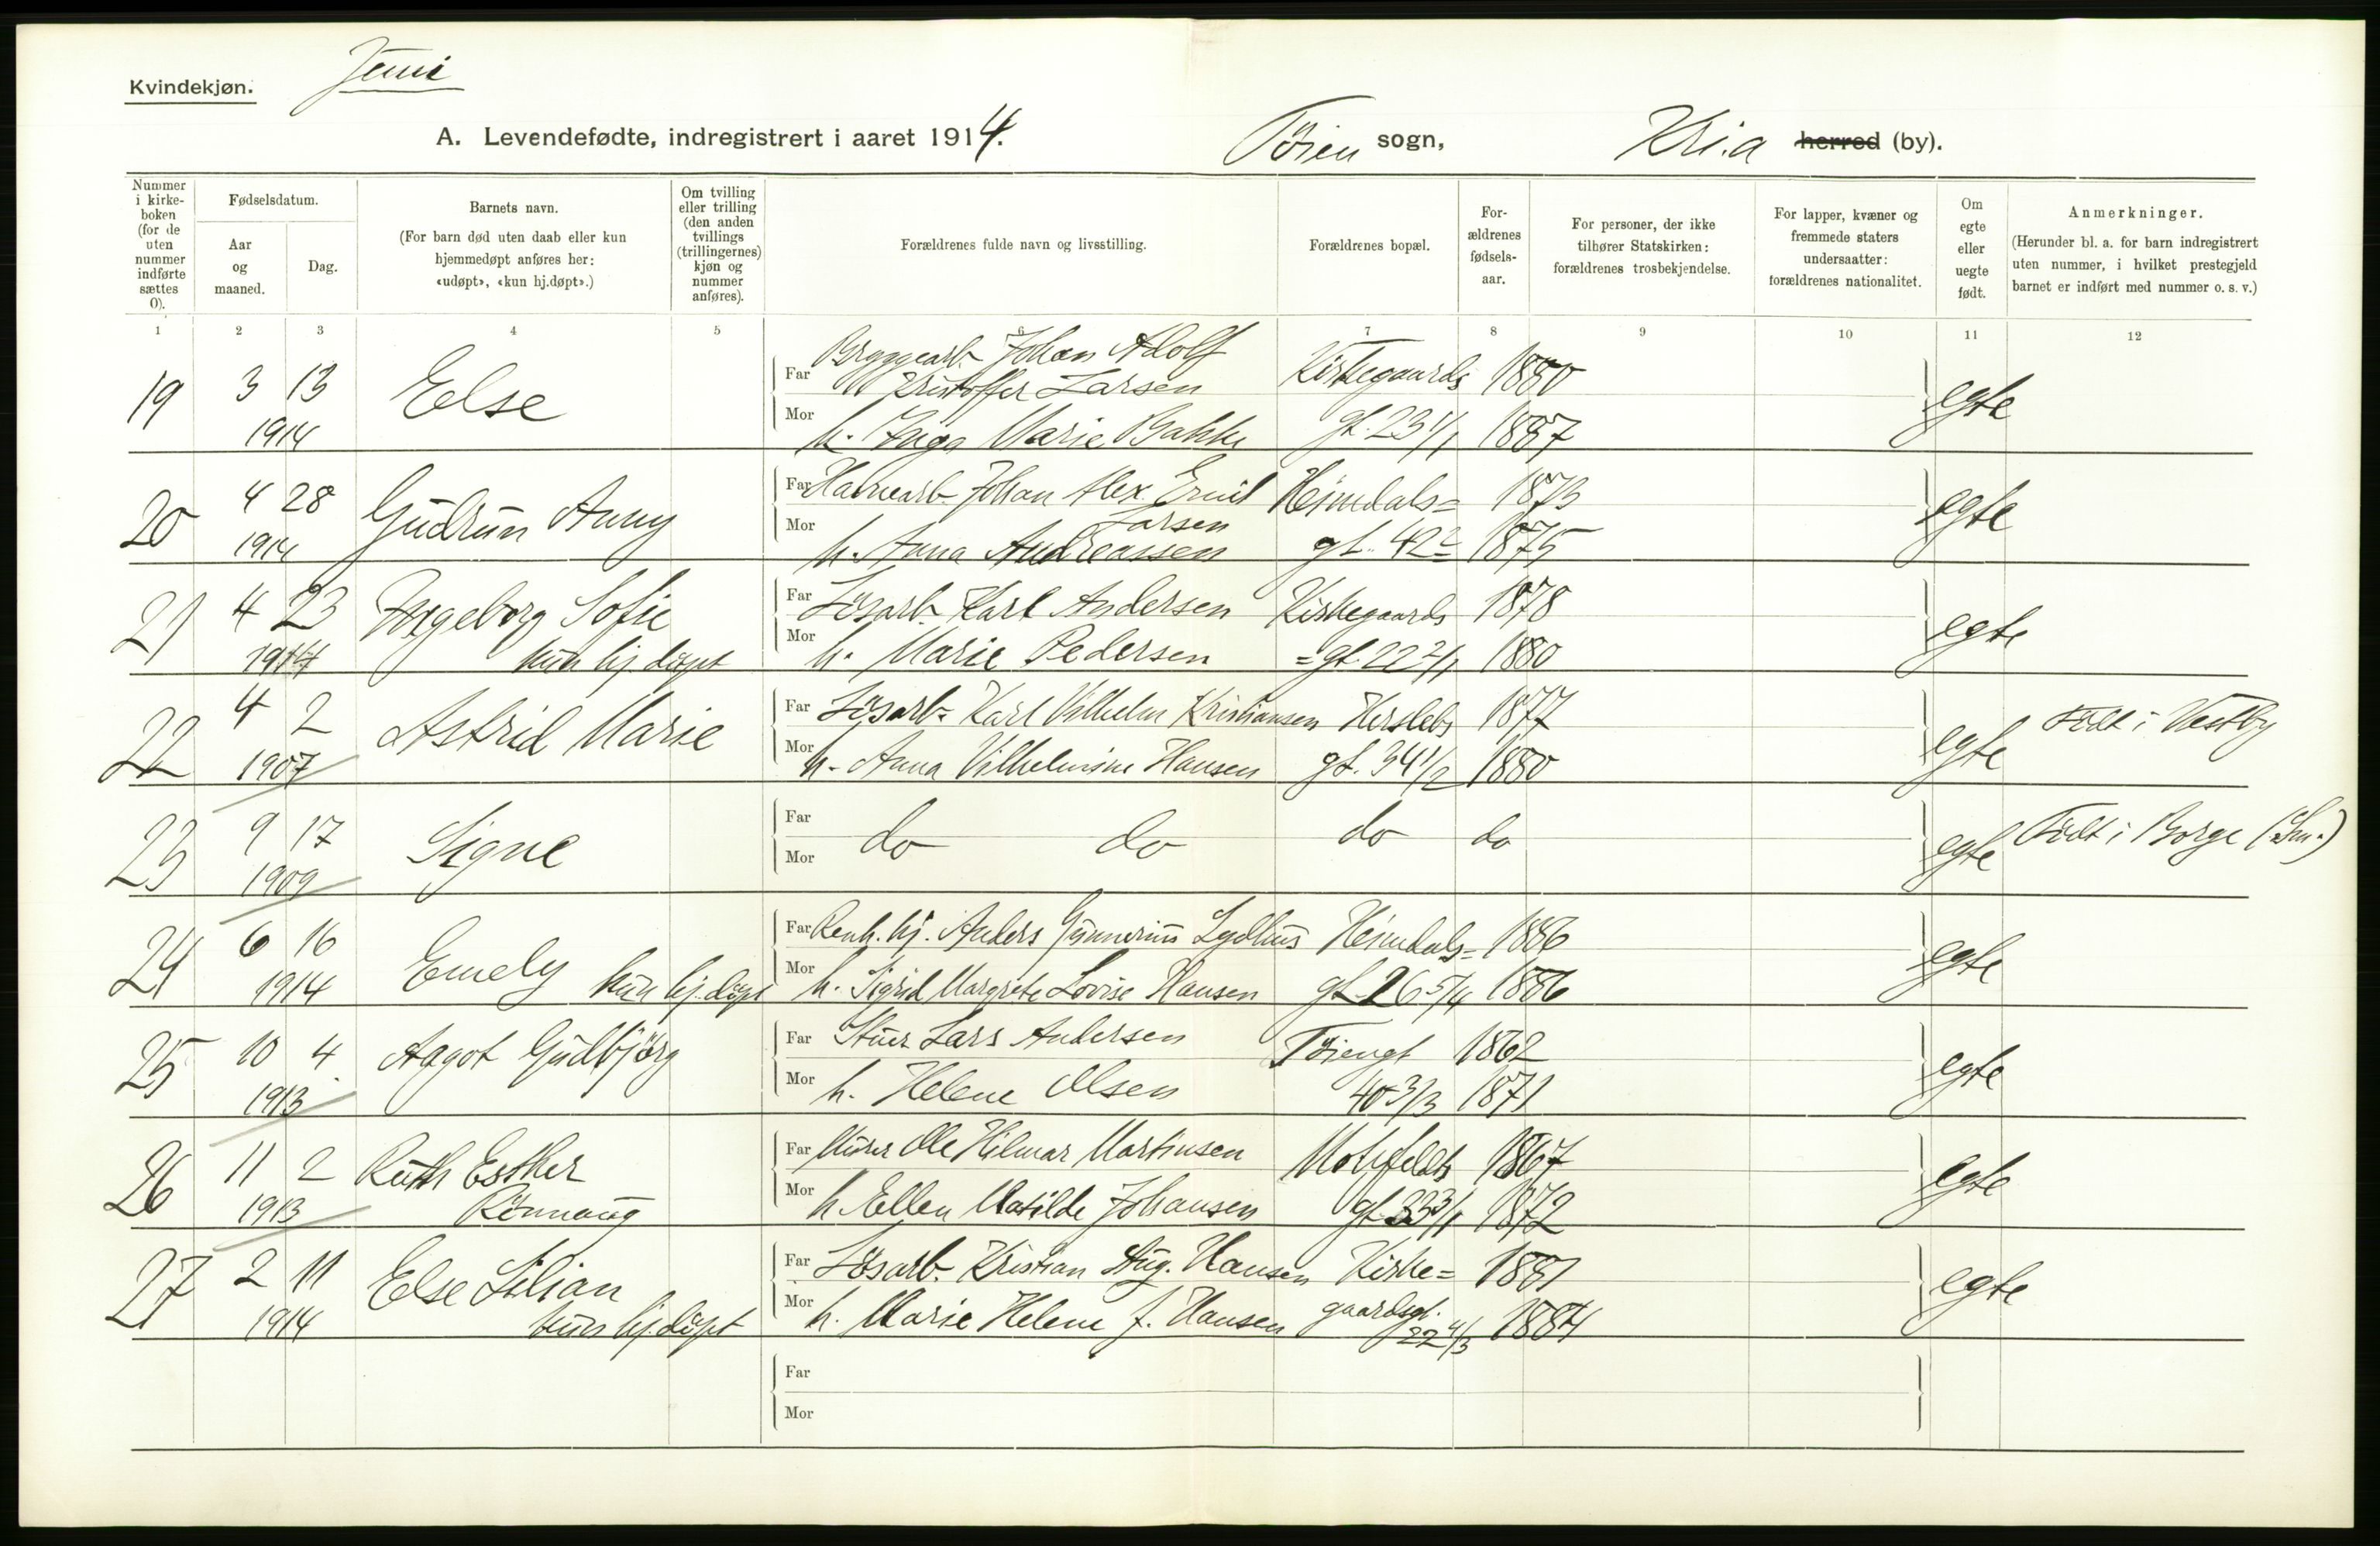 Kvindekjøn.
Juni
A. Levendefødte, indregistrert i aaret 1914.
Tøien sogn,
Kri.a herred (by).
Nummer i kirke- boken (for de uten nummer indførte sættes 0).
Fødselsdatum.
Aar og maaned.
Dag.
Barnets navn.
(For barn død uten daab eller kun hjemmedøpt anføres her: «udøpt», «kun hj.døpt».)
Om tvilling eller trilling (den anden tvillings (trillingernes) kjøn og nummer anføres).
Forældrenes fulde navn og livsstilling.
Forældrenes bopæl.
For- ældrenes fødsels- aar.
For personer, der ikke tilhører Statskirken: forældrenes trosbekjendelse.
For lapper, kvæner og fremmede staters undersaatter: forældrenes nationalitet.
Om egte eller uegte født.
Anmerkninger.
(Herunder bl. a. for barn indregistrert uten nummer, i hvilket prestegjeld barnet er indført med nummer o. s. v.)
1 2 3 4 5 6 7 8 9 10 11 12
19 3 13 1914 Else
Far Bryggearb. Johan Adolf Kristoffer Larsen Kirkegaards 1880
Mor h. Inga Marie Bakke gt. 23 1/1 1887 egte
20 4 28 1914 Gudrun Anny
Far Havnearb. Johan Alex. Emil Larsen Heimdals= 1873
Mor h. Anna Andreassen gt. 42 2 1875 egte
21 4 23 1914 Ingeborg Sofie kun hj. døpt
Far Løsarb. Karl Andersen Kirkegaards 1878
Mor h. Marie Pedersen =gt. 22 2/1 1880 egte
22 4 2 1907 Astrid Marie
Far Løsarb. Karl Vilhelm Kristiansen Herslebs 1877
Mor h. Anna Vilhelmine Hansen gt. 34 1/2 1880 egte Født i Vestby
23 9 17 1909 Signe
Far Mor do do do do egte Født i Borge (Sm.)
24 6 16 1914 Emely kun hj. døpt
Far Renh. hj. Anders Gunnerius Lydhus Heimdals= 1886
Mor h. Sigrid Margrete Lovise Hansen gt 26 5/4 1886 egte
25 10 4 1913 Aagot Gudbjørg
Far Stuer Lars Andersen Tøiengt 1862
Mor h. Helene Olsen 40 3/3 1871 egte
26 11 2 1913 Ruth Esther Rønnaug
Far Murer Ole Hilmar Martinsen Motzfeldts 1867
Mor h. Ellen Matilde Johansen gt 33 3/1 1872 egte
27 2 11 1914 Else Lilian kun hj. døpt
Far Løsarb. Kristian Aug. Hansen Kirke= 1881
Mor h. Marie Helene f. Hansen gaardsgt. 22 4/3 1884 egte
Far
Mor